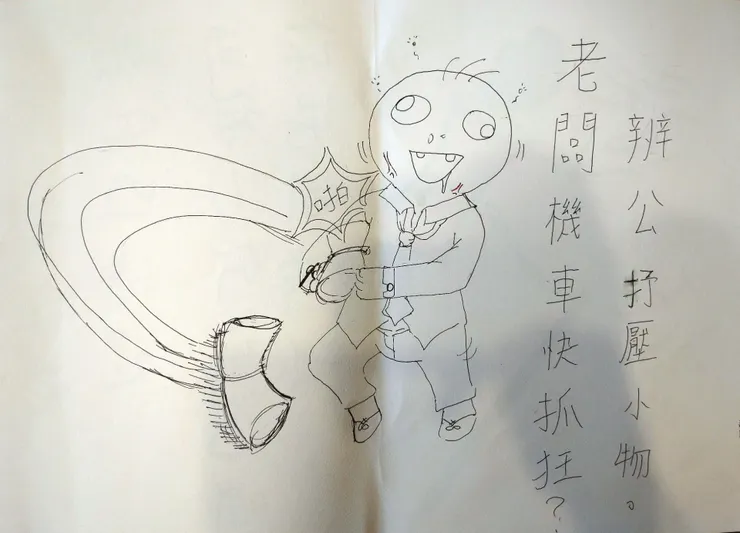 老闆機車快抓狂？
辨公抒壓小物。
啪